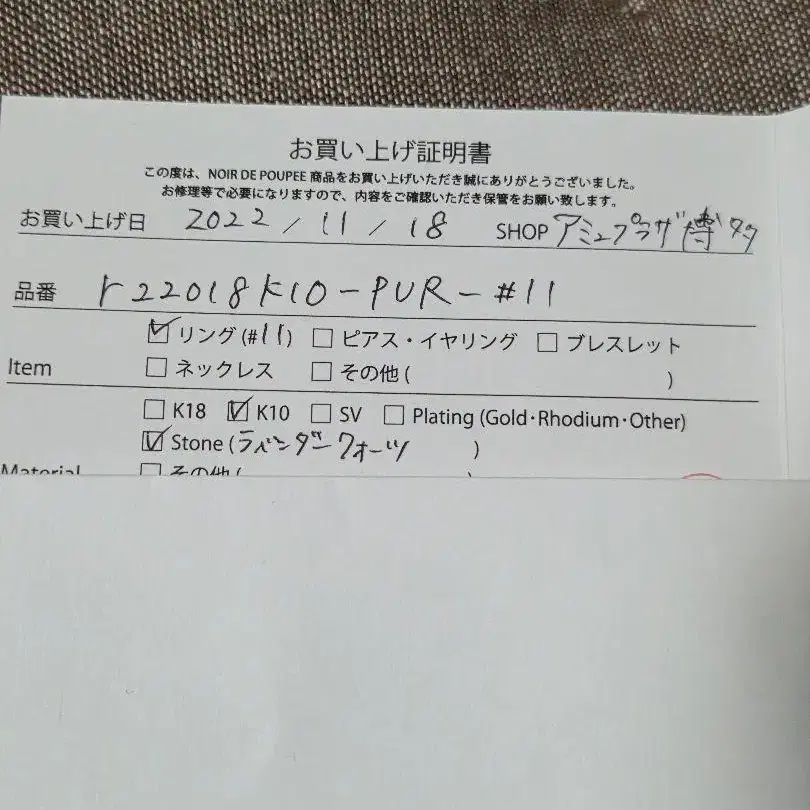 お買い上げ証明書
この度は、NOIR DE POUPEE 商品をお買い上げいただき誠にありがとうございました。
お修理等で必要になりますので、内容をご確認いただき保管をお願い致します。
お買い上げ日 2022/11/18 SHOP アミュプラザ博多
品番 r22018K10-PUR-#11
☑ リング(#11) □ ピアス・イヤリング □ ブレスレット
Item □ ネックレス □ その他( )
□ K18 ☑ K10 □ SV □ Plating (Gold・Rhodium・Other)
☑ Stone (ラベンダークォーツ )
Material □ その他( )